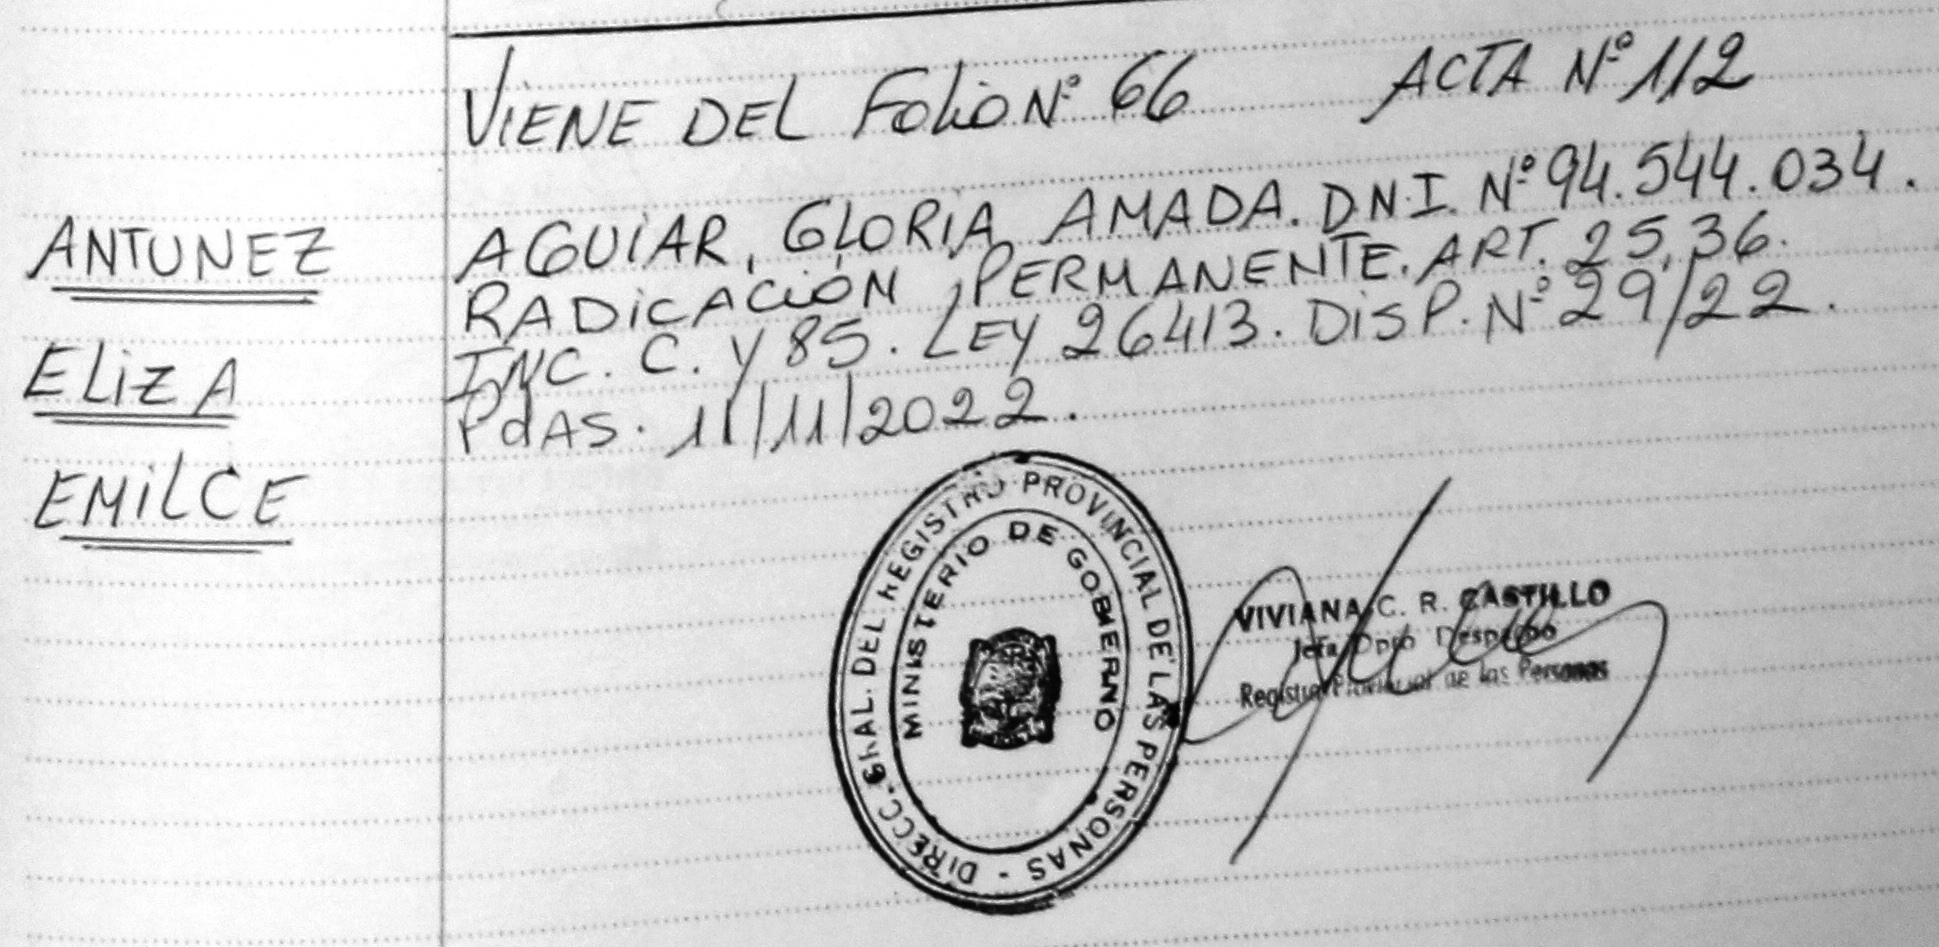 VIENE DEL FOLIO Nº 66 ACTA Nº 112
ANTUNEZ
ELIZA
EMILCE
AGUIAR, GLORIA AMADA. D.N.I. Nº 94.544.034.
RADICACIÓN PERMANENTE. ART. 25, 36.
INC. C. Y 85. LEY 26413. DISP. Nº 29/22.
PdAS. 11/11/2022.
DIRECC. GRAL. DEL REGISTRO PROVINCIAL DE LAS PERSONAS -
MINISTERIO DE GOBIERNO
VIVIANA C. R. CASTILLO
Jefa Dpto Despacho
Registro Provincial de las Personas